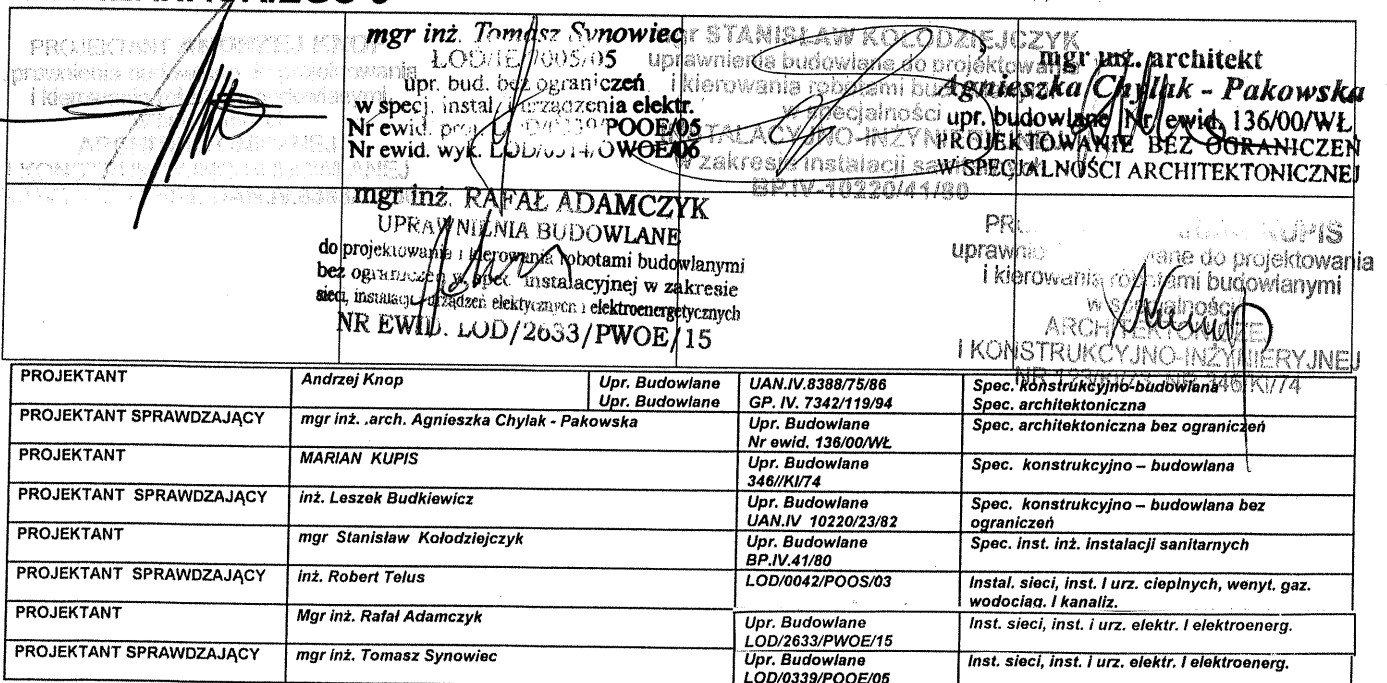 PROJEKTANT ANDRZEJ KNOP
i kierowania
mgr inż. Tomasz Synowiec
ŁOD/IE/7005/05
upr. bud. bez ograniczeń
w specj. instal. i urządzenia elektr.
Nr ewid. proj. LOD/0339/POOE/05
Nr ewid. wyk. LOD/0514/OWOE/06
mgr STANISŁAW KOŁODZIEJCZYK
uprawnienia budowlane do projektowania
i kierowania robotami
w specjalności
INSTALACYJNO-INŻYNIERYJNEJ
w zakresie instalacji sanitarnych
BP.IV-10220/41/80
mgr inż. architekt
Agnieszka Chylak - Pakowska
upr. budowlane Nr ewid. 136/00/WŁ
PROJEKTOWANIE BEZ OGRANICZEŃ
W SPECJALNOŚCI ARCHITEKTONICZNEJ
mgr inż. RAFAŁ ADAMCZYK
UPRAWNIENIA BUDOWLANE
do projektowania i kierowania robotami budowlanymi
bez ograniczeń w spec. instalacyjnej w zakresie
sieci, instalacji i urządzeń elektycznych i elektroenergetycznych
NR EWID. LOD/2633/PWOE/15
KUPIS
do projektowania
i kierowania robotami budowlanymi
w specjalności
ARCHITEKTONICZNEJ
I KONSTRUKCYJNO-INŻYNIERYJNEJ
346/KI/74
PROJEKTANT Andrzej Knop Upr. Budowlane UAN.IV.8388/75/86 Spec. konstrukcyjno-budowlana
Upr. Budowlane GP. IV. 7342/119/94 Spec. architektoniczna
PROJEKTANT SPRAWDZAJĄCY mgr inż. .arch. Agnieszka Chylak - Pakowska Upr. Budowlane Spec. architektoniczna bez ograniczeń
Nr ewid. 136/00/WŁ
PROJEKTANT MARIAN KUPIS Upr. Budowlane Spec. konstrukcyjno – budowlana
346//KI/74
PROJEKTANT SPRAWDZAJĄCY inż. Leszek Budkiewicz Upr. Budowlane Spec. konstrukcyjno – budowlana bez
UAN.IV 10220/23/82 ograniczeń
PROJEKTANT mgr Stanisław Kołodziejczyk Upr. Budowlane Spec. inst. inż. instalacji sanitarnych
BP.IV.41/80
PROJEKTANT SPRAWDZAJĄCY inż. Robert Telus LOD/0042/POOS/03 Instal. sieci, inst. I urz. cieplnych, wenyt. gaz.
wodociąg. I kanaliz.
PROJEKTANT Mgr inż. Rafał Adamczyk Upr. Budowlane Inst. sieci, inst. i urz. elektr. I elektroenerg.
LOD/2633/PWOE/15
PROJEKTANT SPRAWDZAJĄCY mgr inż. Tomasz Synowiec Upr. Budowlane Inst. sieci, inst. i urz. elektr. I elektroenerg.
LOD/0339/POOE/05